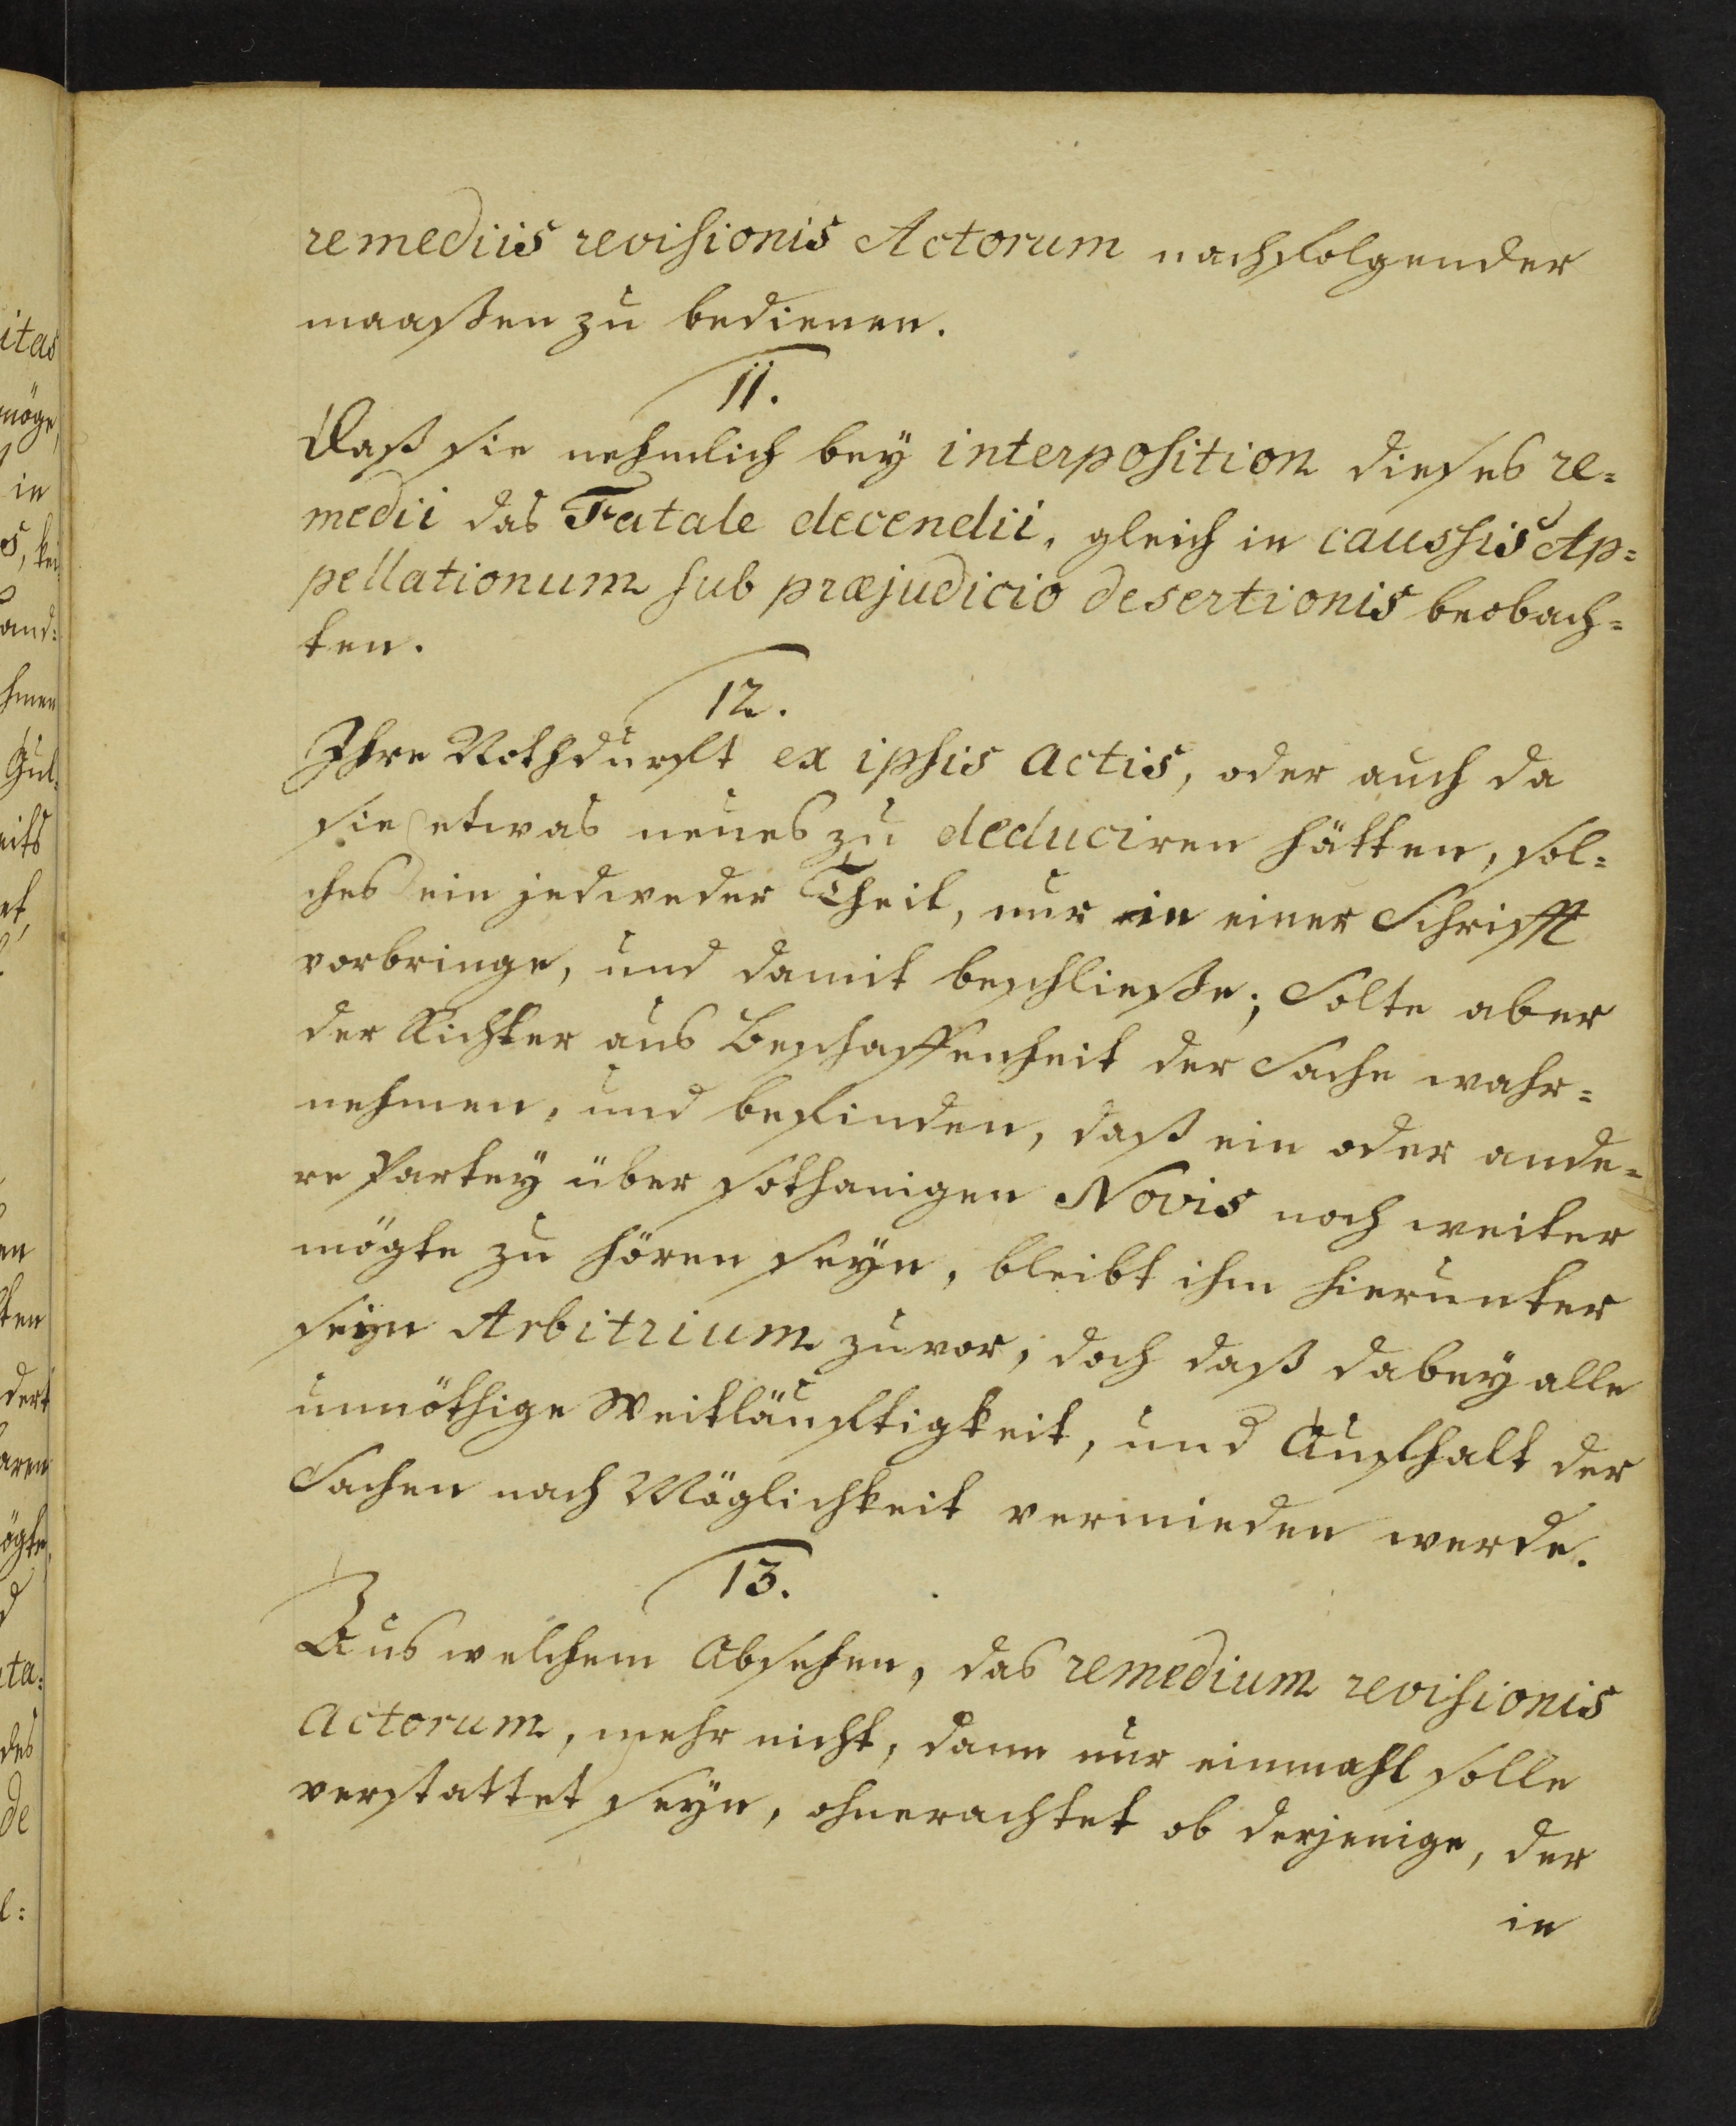 remediis revisionis Actorum nachfolgender
maaßen zu bedienen.
11.
Daß sie nehmlich bey interposition dieses re=
medii das Fatale decendii, gleich in caussis Ap=
pellationum sub præjudicio desertionis beobach=
ten.
12.
Ihre Nothdurfft ex ipsis actis, oder auch da
sie etwas neues zu deduciren hätten, sol=
ches ein jedweder Theil, nur in einer Schrifft
vorbringe, und damit beschließe; Solte aber
der Richter aus Beschaffenheit der Sache wahr=
nehmen, und befinden, daß ein oder ande=
re Partey über sothanigen Novis noch weiter
mögte zu hören seyn, bleibt ihm hierunter
seyn Arbitrium zuvor, doch daß dabey alle
unnöthige Weitläufftigkeit, und Auffhalt der
Sachen nach Möglichkeit vermieden werde.
13.
Aus welchem Absehen, das remedium revisionis
actorum, mehr nicht, dann nur einmahl solle
verstattet seyn, ohnerachtet ob derjenige, der
in